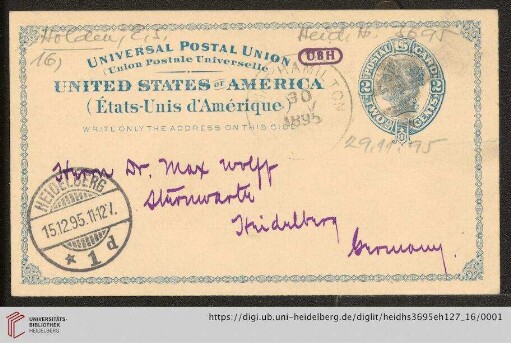 Holden, E.S.
Heid. Hs. 3695
16)
UNIVERSAL POSTAL UNION
(Union Postale Universelle)
UBH
UNITED STATES OF AMERICA
(États-Unis d'Amérique)
WRITE ONLY THE ADDRESS ON THIS SIDE
HAMILTON
30
1895
POSTAL CARD
U.S.
TWO CENTS
29.11.95
Herrn Dr. Max Wolff
Sturnwarte
Heidelberg
Germany.
HEIDELBERG
15.12.95.11-12V.
* 1 d
UNIVERSITÄTS-
BIBLIOTHEK
HEIDELBERG
https://digi.ub.uni-heidelberg.de/diglit/heidhs3695eh127_16/0001